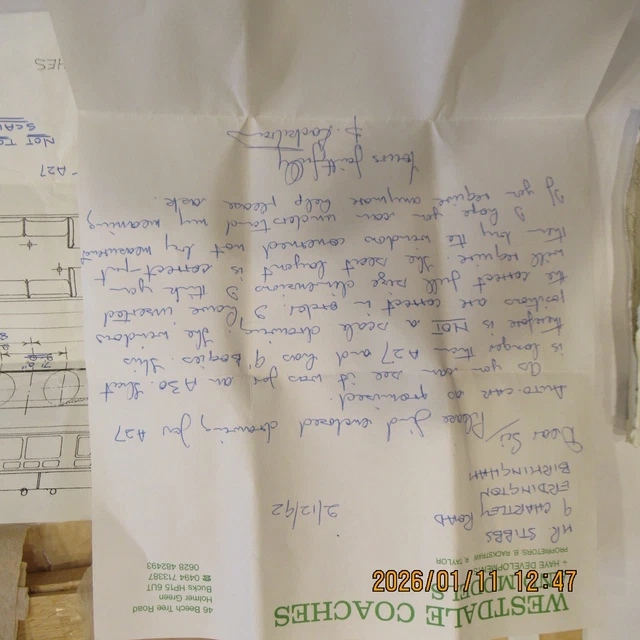 WESTDALE COACHES
PROPRIETORS: B. RACKSTRAW R. TAYLOR
46 Beech Tree Road
Holmer Green
Bucks HP15 6UT
☎ 0494 713397
0628 482493
MR STIBBS
9 CHARTLEY ROAD
ERDINGTON
BIRMINGHAM
9/12/92
Dear Sir/
Please find enclosed drawing for A27
AUTO-CAR as promised.
As you can see it was for an A30. That
is longer than A27 and has 9' Bogies. This
therefore is NOT a scale drawing. The windows
positions are correct in order I have inserted
the correct full size dimensions I think you
will require. The seat layout is correct just
then by the windows concerned not by measurement
I hope you can understand my meaning
If you require anymore help please ask.
Yours faithfully
A27
NOT TO
SCALE
2026/01/11 12:47